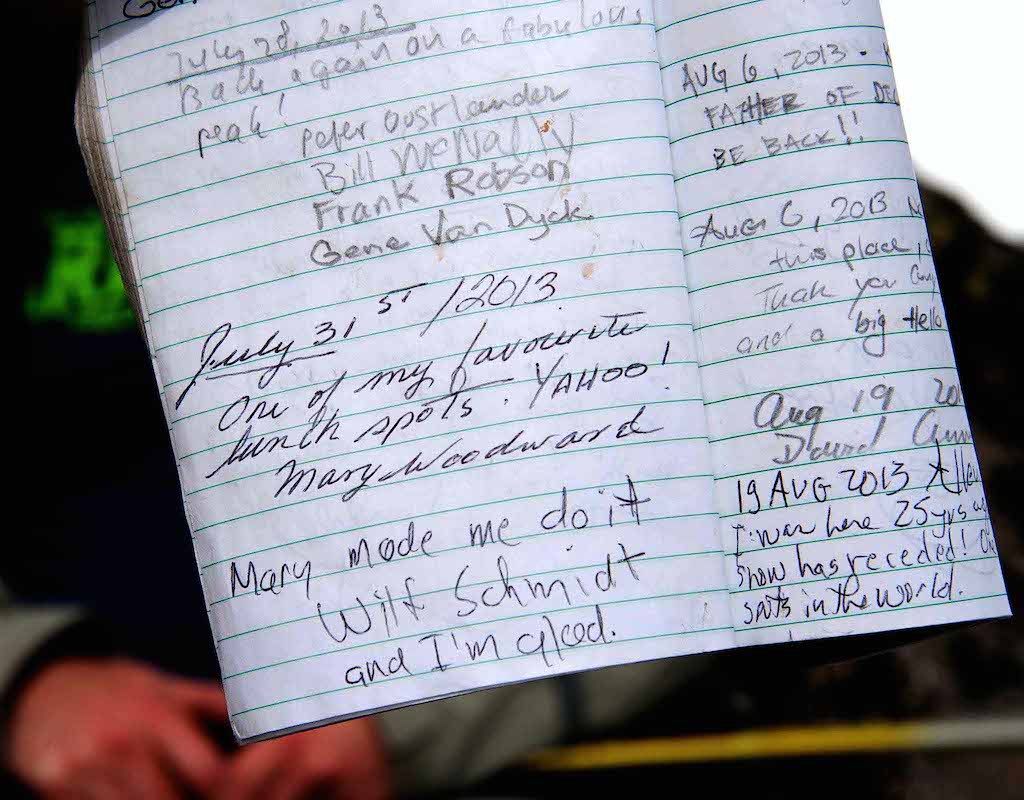 July 28, 2013
Back again on a fabulous
peak!
Peter Oostlander
Bill McNally
Frank Robson
Gene Van Dyck
July 31 ST /2013
One of my favourite
lunch spots. YAHOO!
Mary Woodward
Mary made me do it
Wilf Schmidt
and I'm glad.
AUG 6, 2013 -
FATHER OF
BE BACK!!
Aug 6, 2013
this place,
Thank you
and a big Hello
Aug 19 20
David
19 AUG 2013
I was here 25 yrs
Snow has receded!
spots in the world.